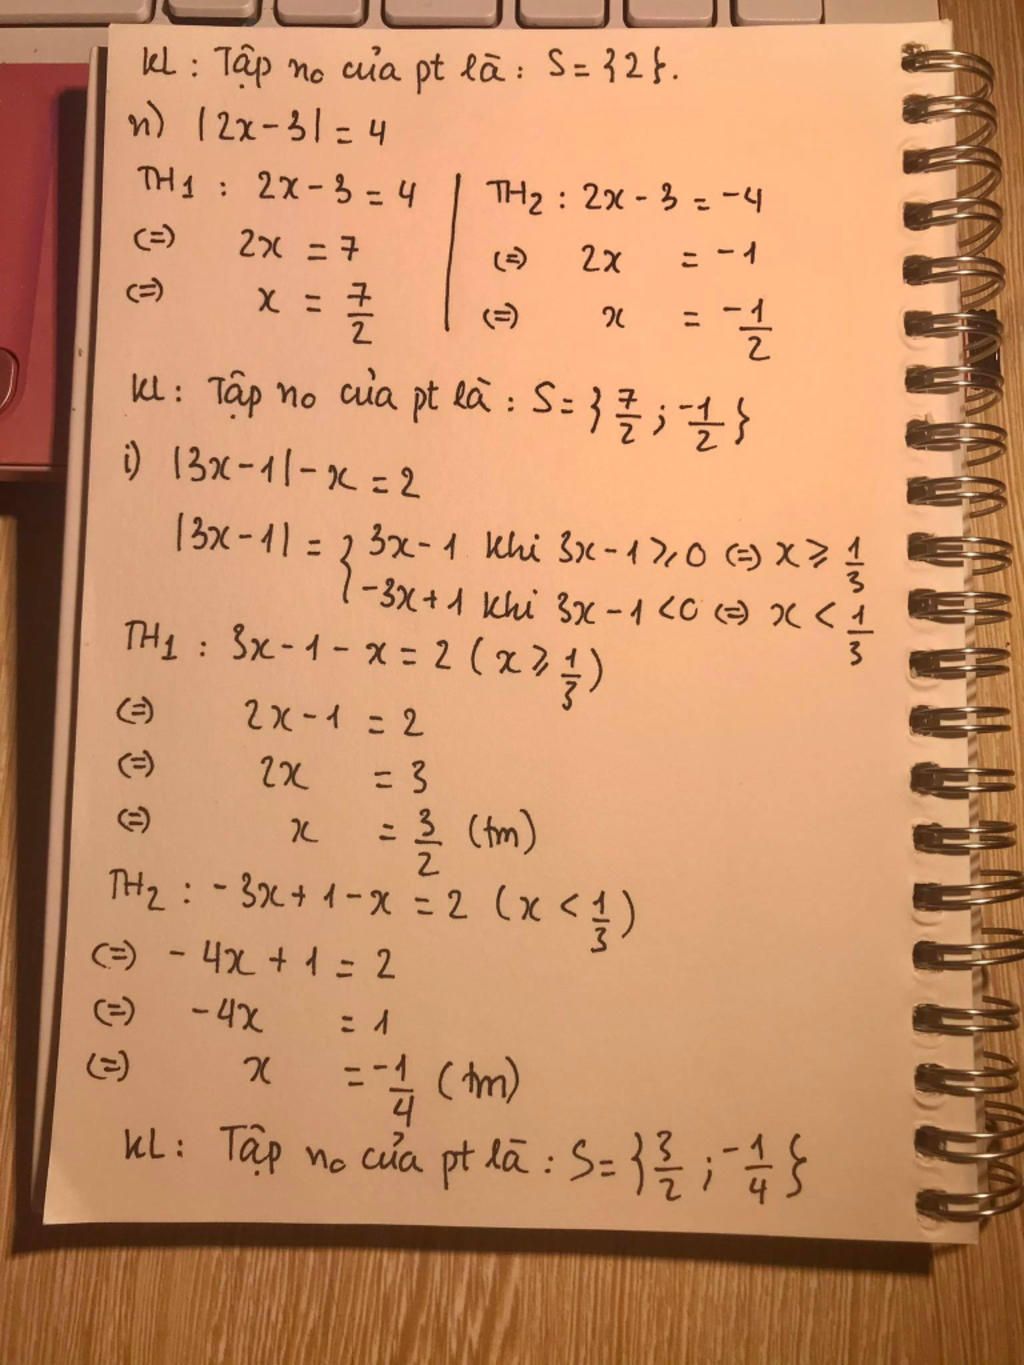 KL: Tập no của pt là: S = {2}.
n) |2x - 3| = 4
TH1: 2x - 3 = 4
(=) 2x = 7
(=) x = 7/2
TH2: 2x - 3 = -4
(=) 2x = -1
(=) x = -1/2
KL: Tập no của pt là: S = {7/2; -1/2}
i) |3x - 1| - x = 2
|3x - 1| = { 3x - 1 khi 3x - 1 ⩾ 0 (=) x ⩾ 1/3
-3x + 1 khi 3x - 1 < 0 (=) x < 1/3
TH1: 3x - 1 - x = 2 (x ⩾ 1/3)
(=) 2x - 1 = 2
(=) 2x = 3
(=) x = 3/2 (tm)
TH2: -3x + 1 - x = 2 (x < 1/3)
(=) -4x + 1 = 2
(=) -4x = 1
(=) x = -1/4 (tm)
KL: Tập no của pt là: S = {3/2; -1/4}